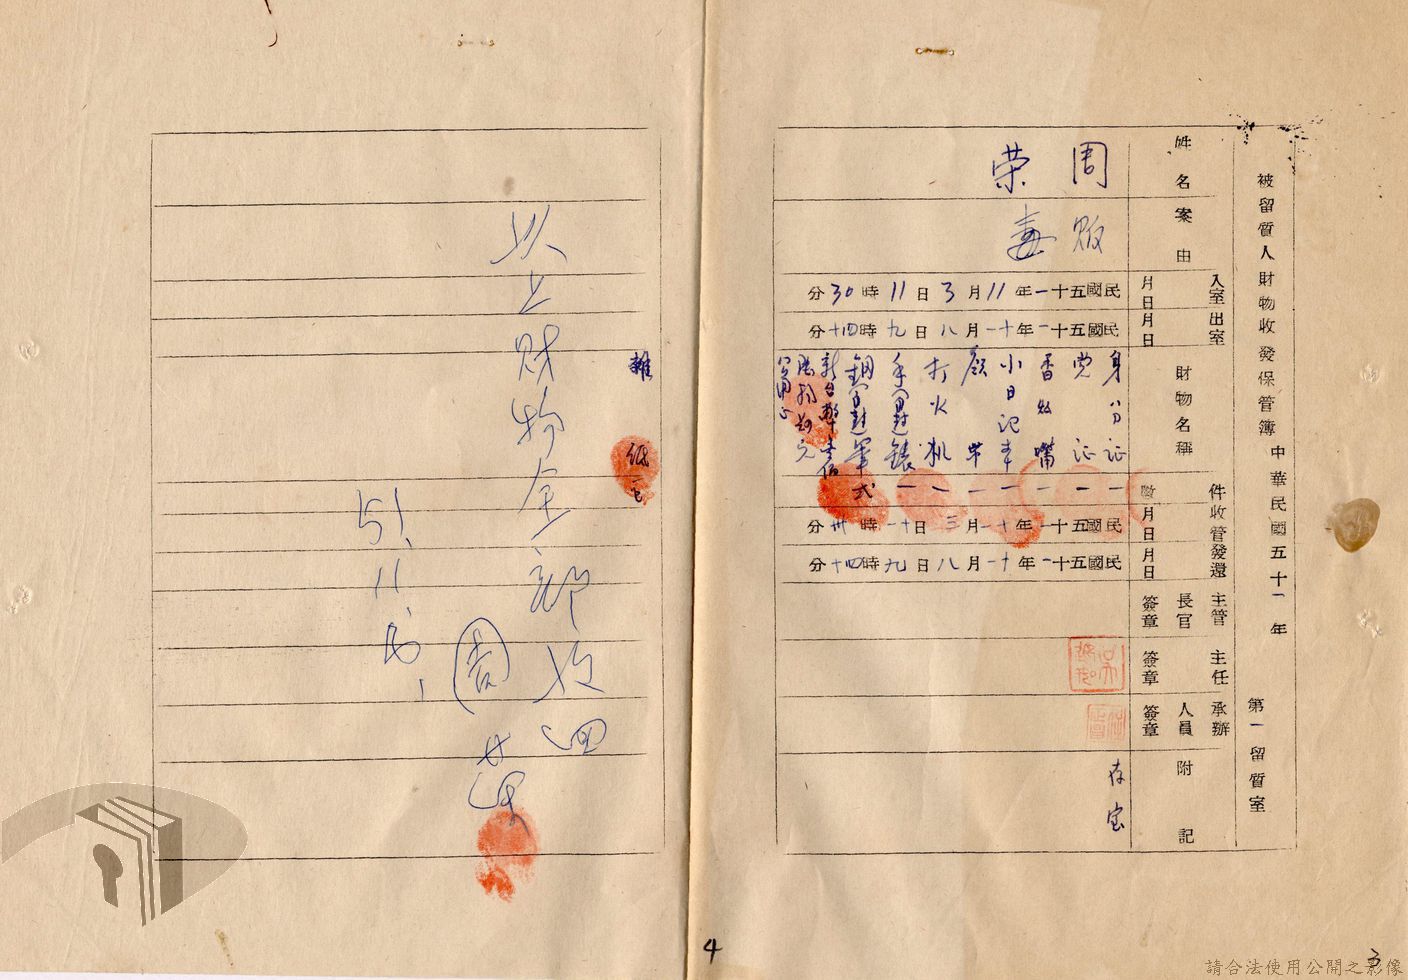 被留質人財物收發保管簿 中華民國五十一年 第一留質室
姓名
周荣
案由
販毒
入室 月日
民國五十一年11月3日11時30分
出室 月日
民國五十一年十一月八日九時四十分
財物名稱
件數
身分证 一
党证 一
香烟嘴 一
小日记本 一
一
打火机 一
手錶 一
鋼筆 弍
新台幣壹佰
雜紙
收管 月日
民國五十一年十一月三日十一時卅分
發還 月日
民國五十一年十一月八日九時四十分
主管長官簽章
主任簽章
承辦人員簽章
附記
存室
以上財物全部收回
周荣
51.11.8.
4
3
請合法使用公開之影像